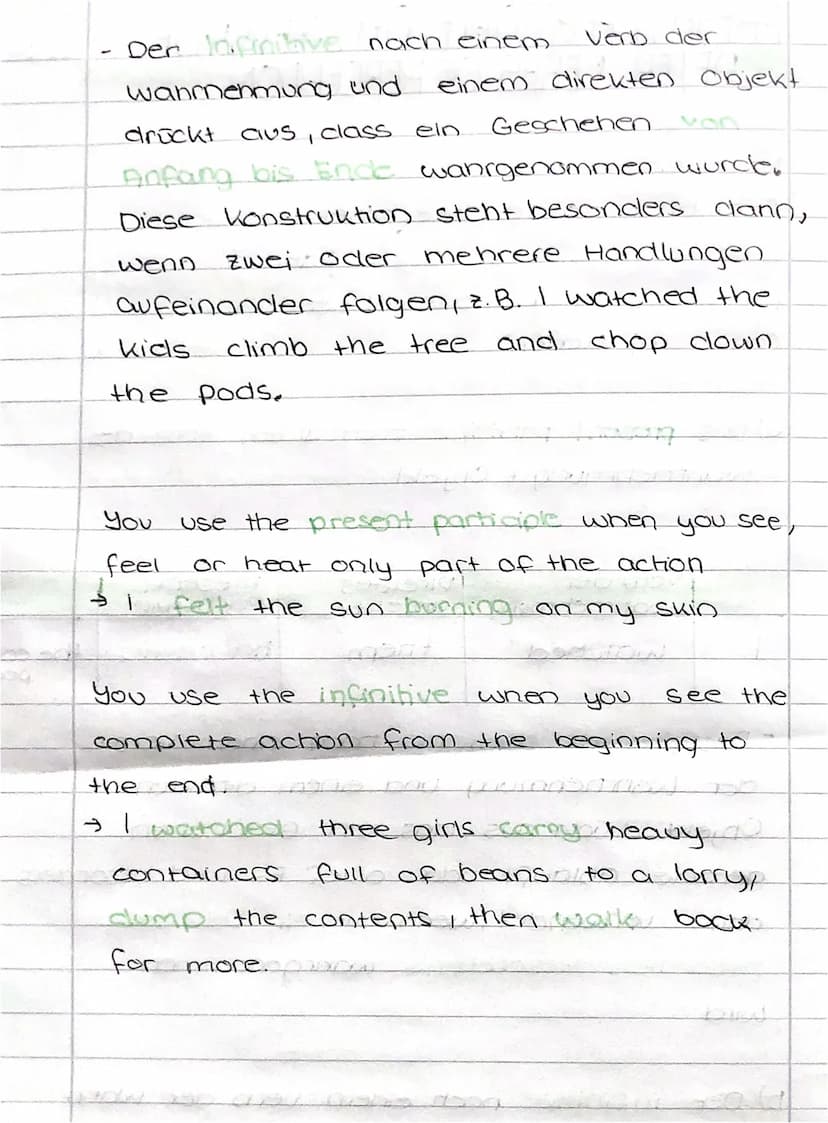 - Der Infinitive nach einem Verb der
Wahrnehmung und einem direkten Objekt
drückt aus, dass ein Geschehen von
Anfang bis Ende wahrgenommen wurde.
Diese Konstruktion steht besonders dann,
wenn zwei oder mehrere Handlungen
aufeinander folgen, z.B. I watched the
kids climb the tree and chop down
the pods.
You use the present participle when you see,
feel or hear only part of the action
→ I felt the sun burning on my skin
You use the infinitive when you see the
complete action from the beginning to
the end.
→ I watched three girls carry heavy
containers full of beans to a lorry,
dump the contents, then walk back
for more.